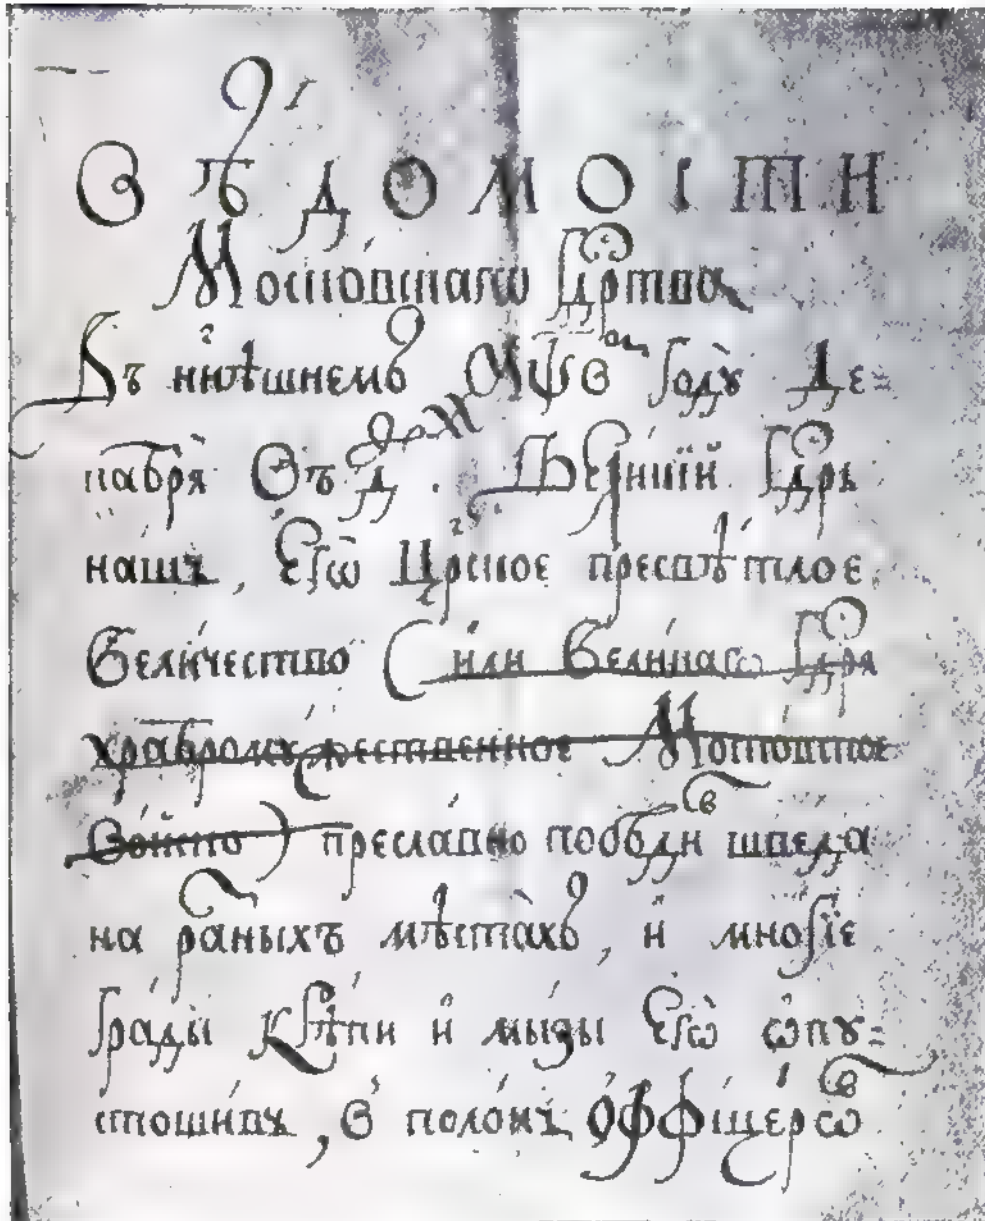 ВѢДОМОСТИ
Московскагѡ Гдртва
Въ нн҃ѣшнемъ ҂аѱв годꙋ де=
кабря въ д҃ . Великїй гдрь
нашъ, Егѡ Црское пресвѣтлое
величество (или великагѡ гдря
храбромꙋжественное московское
войско) преславно побѣди шведа
на разныхъ мѣстахъ, и многїе
грады крѣпки и мызы егѡ ѡпꙋ=
стошивъ, в полонъ оффицерѡвъ